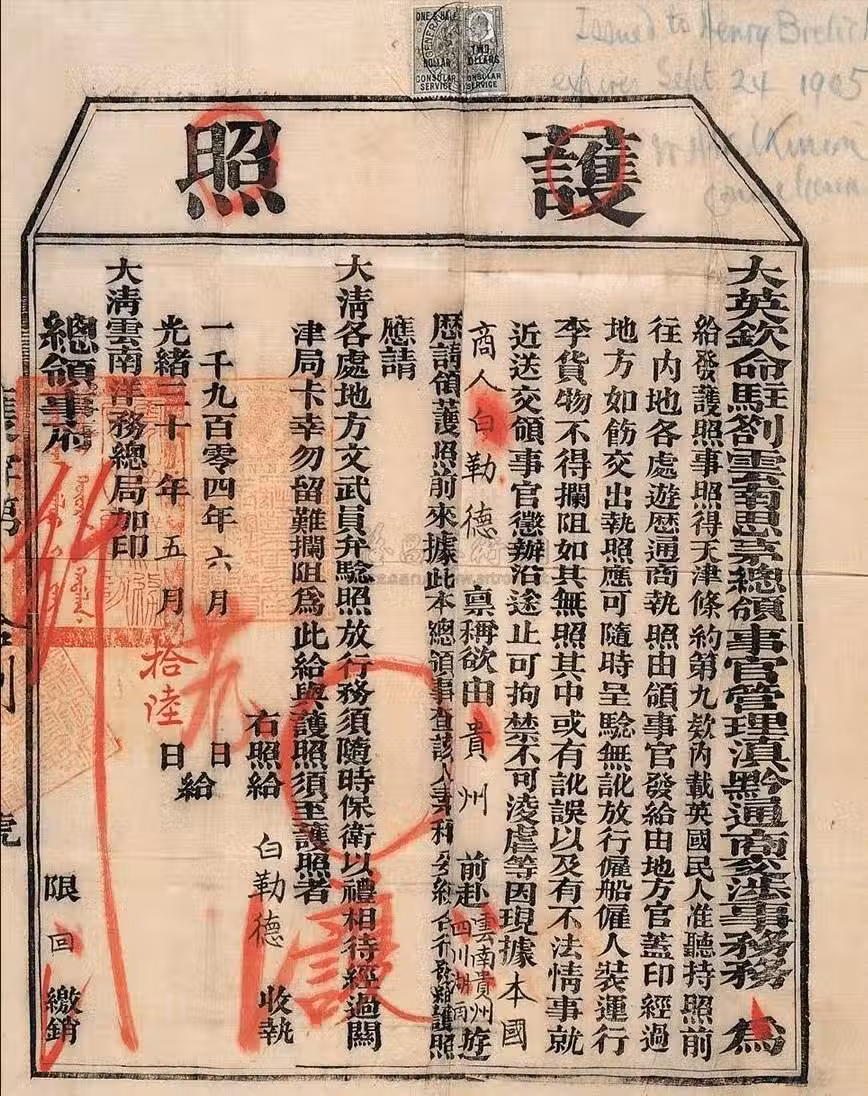 ONE & HALF DOLLAR CONSULAR SERVICE
TWO DOLLARS CONSULAR SERVICE
Issued to Henry
expires Sept 24 1905
護照
大英欽命駐劄雲南思茅總領事官管理滇黔通商交涉事務 為
給發護照事照得天津條約第九欵內載英國民人准聽持照前
往內地各處遊歷通商執照由領事官發給由地方官蓋印經過
地方如飭交出執照應可隨時呈驗無訛放行僱船僱人裝運行
李貨物不得攔阻如其無照其中或有訛誤以及有不法情事就
近送交領事官懲辦沿途止可拘禁不可淩虐等因現據本國
商人白勒德 稟稱欲由貴州 前赴雲南貴州四川湖南遊
歷請領護照前來據此本總領事查該人 護照
應請
大清各處地方文武員弁驗照放行務須隨時保衛以禮相待經過關
津局卡幸勿留難攔阻為此給與護照須至護照者
右照給 白勒德 收執
一千九百零四年六月 日
光緒三十年五月拾陸日給
大清雲南洋務總局加印
總領事
限回繳銷
護
號